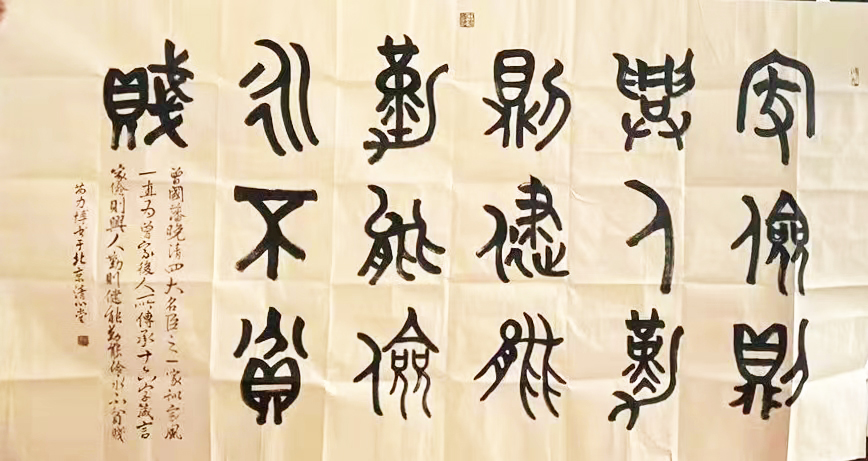 家儉則
興人勤
則健能
勤能儉
永不貧
賤
曾國藩晚清四大名臣之一家訓家風
一直為曾家後人所傳承十六字箴言
家儉則興人勤則健能勤能儉永不貧賤
于北京清心堂